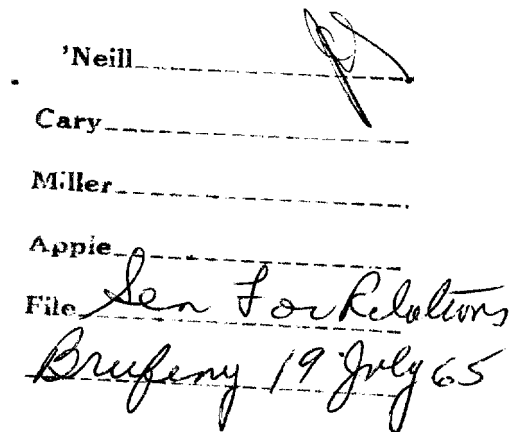 'Neill
Cary
Miller
Appie
File Sen For Relations
Briefing 19 July 65